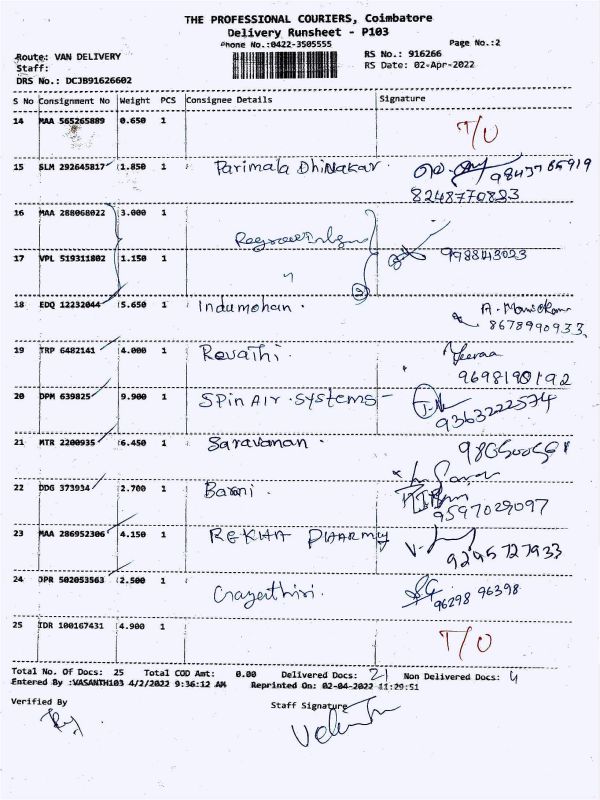 THE PROFESSIONAL COURIERS, Coimbatore
Delivery Runsheet - P103
Phone No.:0422-3505555 Page No.:2
Route: VAN DELIVERY RS No.: 916266
Staff: RS Date: 02-Apr-2022
DRS No.: DCJB91626602
S No Consignment No Weight PCS Consignee Details Signature
14 MAA 565265889 0.650 1 T/U
15 SLM 292645817 1.850 1 Parimala Dhinakar 9843765919
8248770823
16 MAA 288068022 3.000 1
17 VPL 519311802 1.150 1 " 9988443023
18 EDQ 12232044 5.650 1 Indumohan.
8678990933
19 TRP 6482141 4.000 1 Revathi.
9698190192
20 DPM 639825 9.900 1 SPin Air Systems -
9363222534
21 MTR 2200935 6.450 1 Saravanan.
22 DDG 373934 2.700 1 Barani.
9597029097
23 MAA 286952306 4.150 1 REKHA PHARMY
9295727933
24 JPR 502053563 2.500 1 Gayathiri.
96298 96398
25 IDR 100167431 4.900 1 T/U
Total No. Of Docs: 25 Total COD Amt: 0.00 Delivered Docs: 21 Non Delivered Docs: 4
Entered By :VASANTH103 4/2/2022 9:36:12 AM Reprinted On: 02-04-2022 11:29:51
Verified By Staff Signature